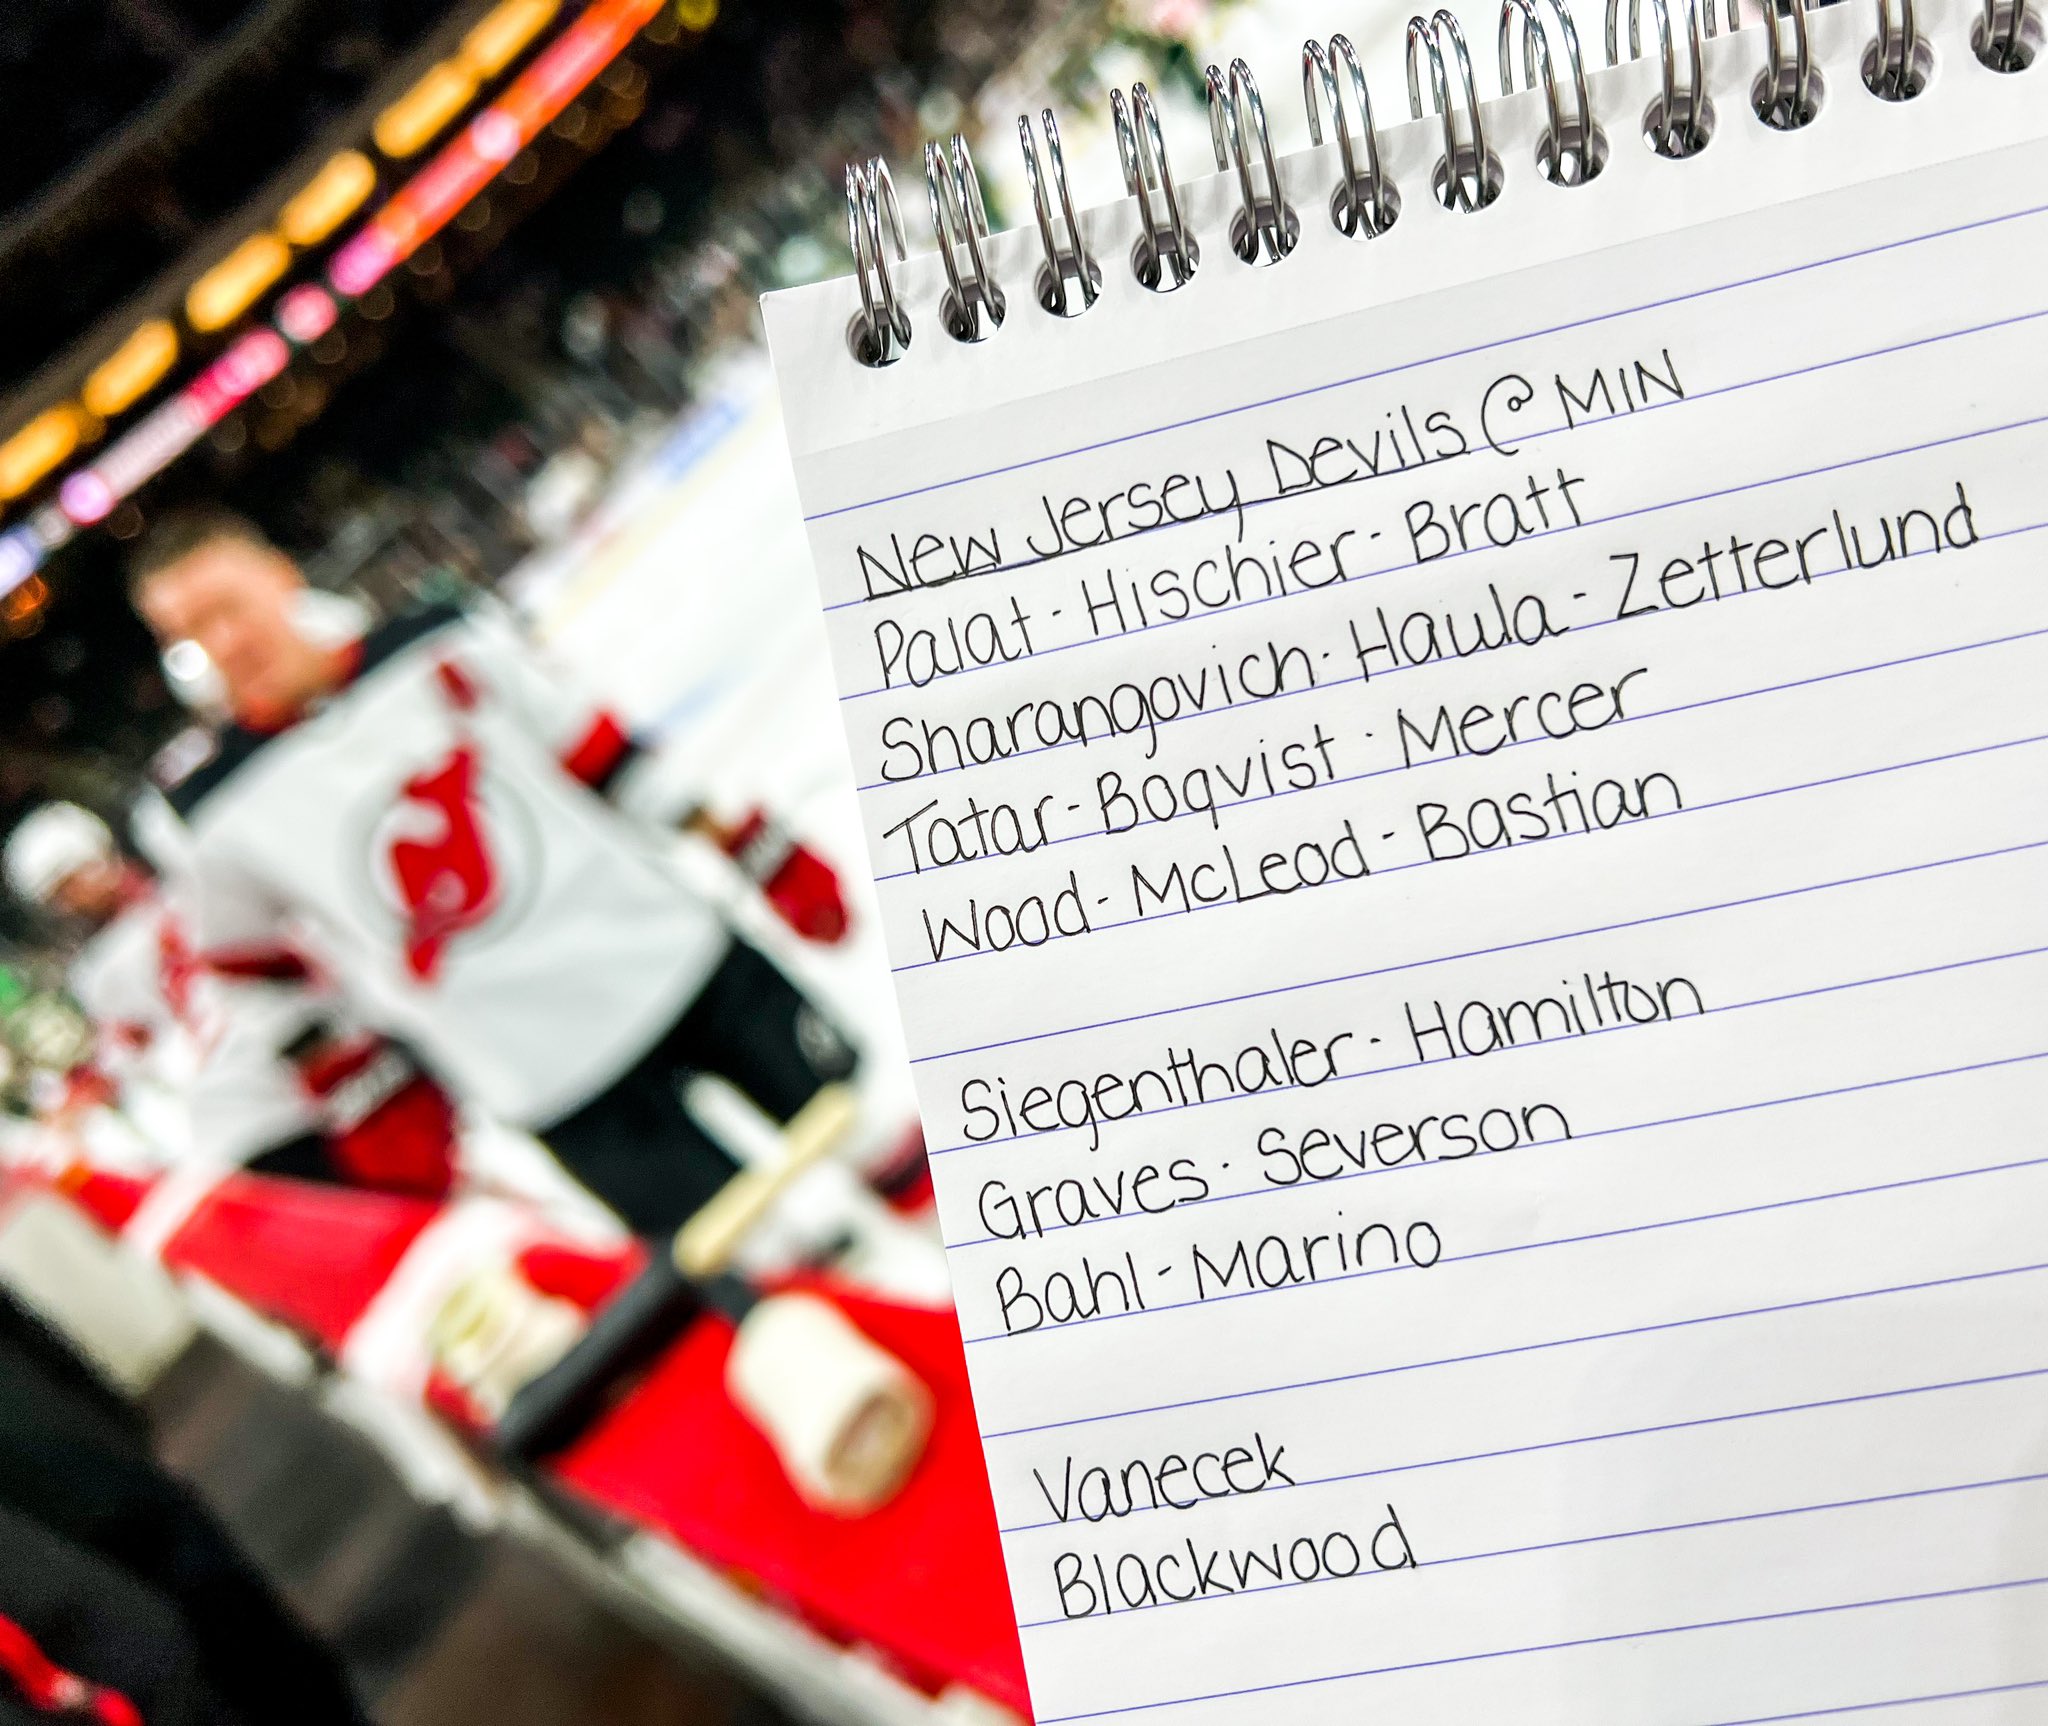 New Jersey Devils @ MIN
Palat - Hischier - Bratt
Sharangovich - Haula - Zetterlund
Tatar - Boqvist - Mercer
Wood - McLeod - Bastian
Siegenthaler - Hamilton
Graves - Severson
Bahl - Marino
Vanecek
Blackwood